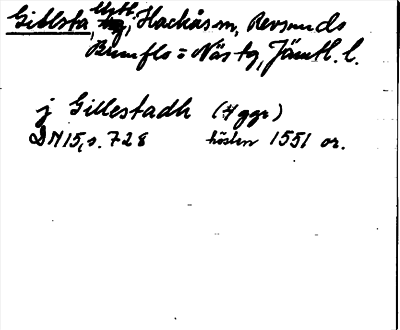 Gillsta, Hackås sn, Revsunds
Brunflo o Näs tg, Jämtl. l.
j Gillestadh (4 ggr)
DN 15, s. 728 hösten 1551 or.